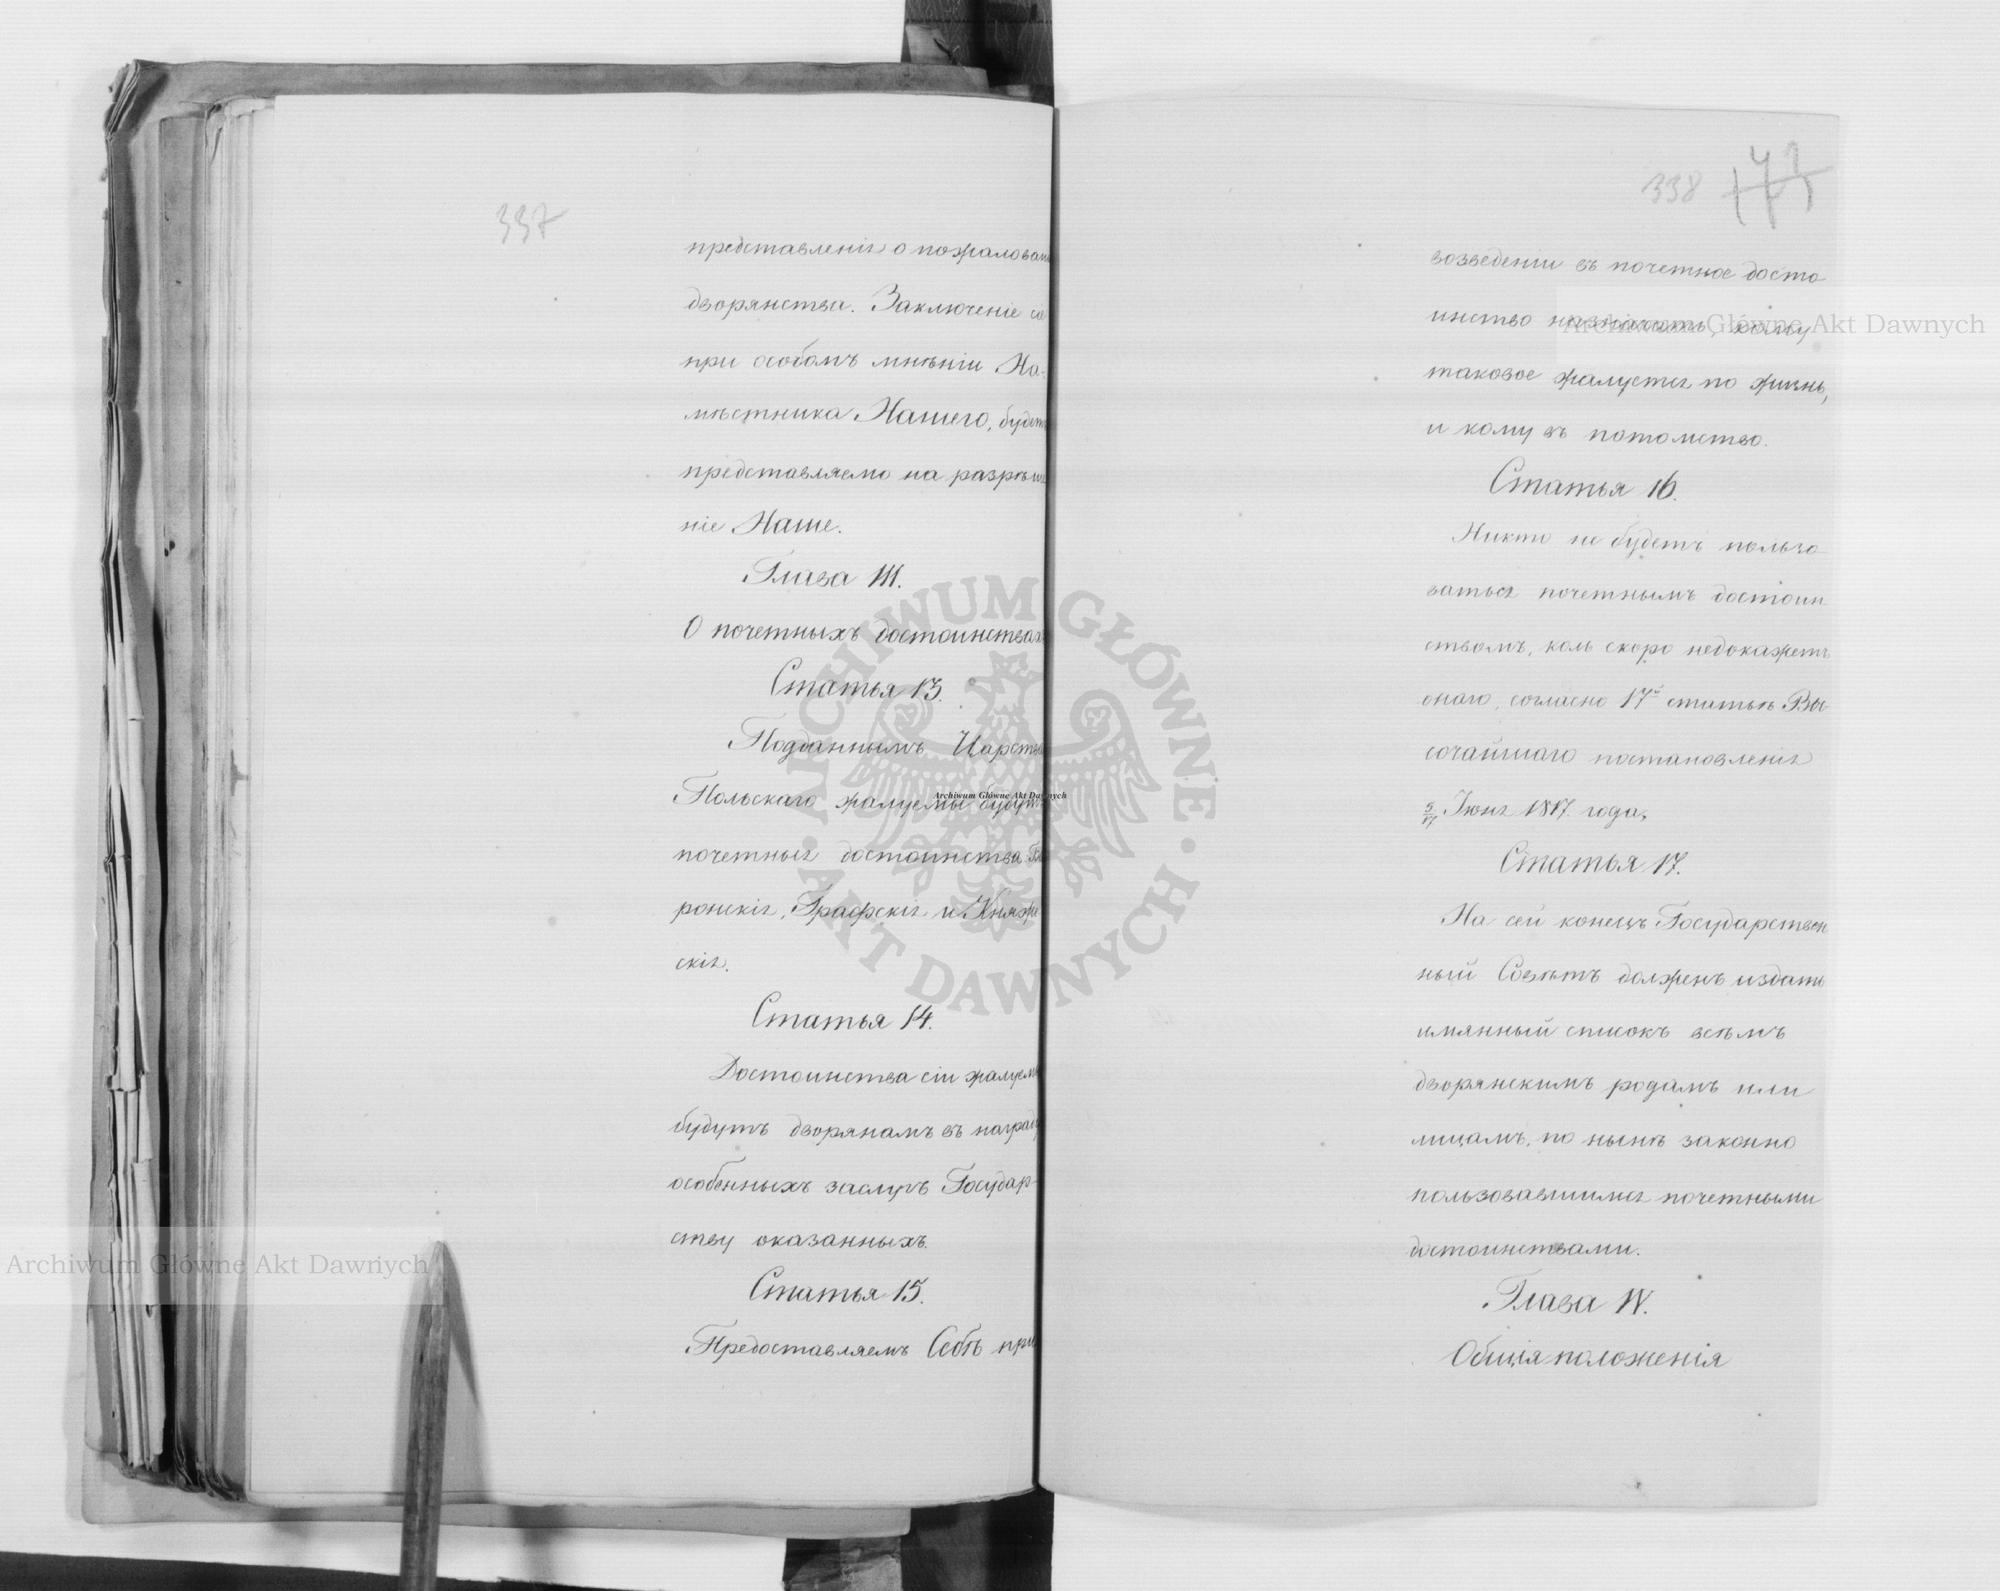 337
представленія о пожаловані
дворянства. Заключеніе сіе
при особомъ мнѣніи На-
мѣстника Нашего, будетъ
представляемо на разрѣше
ніе Наше.
Глава III.
О почетныхъ достоинствахъ
Статья 13.
Подданнымъ Царства
Польскаго жалуемы будутъ
почетныя достоинства: Ба
ронскія, Графскія и Княже
скія.
Статья 14.
Достоинства сіи жалуемы
будутъ дворянамъ въ награду
особенныхъ заслугъ Государ-
ству оказанныхъ.
Статья 15.
Предоставляемъ Себѣ при
338
возведеніи въ почетное досто
инство назначить, кому
таковое жалуется по жизнь,
и кому въ потомство.
Статья 16.
Никто не будетъ пользо
ваться почетнымъ достоин
ствомъ, коль скоро недокажетъ
онаго, согласно 17й статьѣ Вы
сочайшаго постановленія
5/17 Іюня 1817. года.
Статья 17.
На сей конецъ Государствен
ный Совѣтъ долженъ издать
имянный списокъ всѣмъ
дворянскимъ родамъ или
лицамъ, по нынѣ законно
пользовавшимся почетными
достоинствами.
Глава IV.
Общія положенія
Archiwum Główne Akt Dawnych
Archiwum Główne Akt Dawnych
Archiwum Główne Akt Dawnych
ARCHIWUM GŁÓWNE · AKT DAWNYCH ·